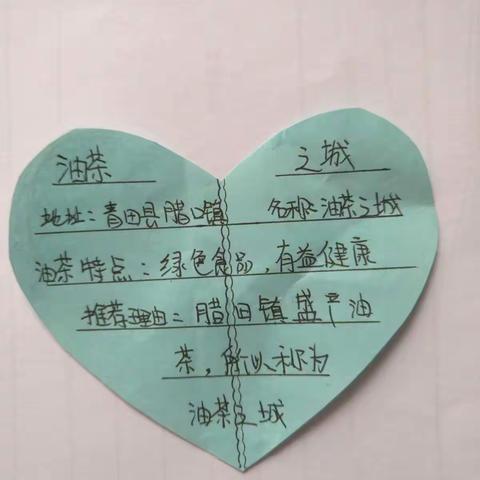 油茶 之城
地址:青田县腊口镇 名称:油茶之城
油茶特点:绿色食品,有益健康
推荐理由:腊口镇盛产油
茶,所以称为
油茶之城